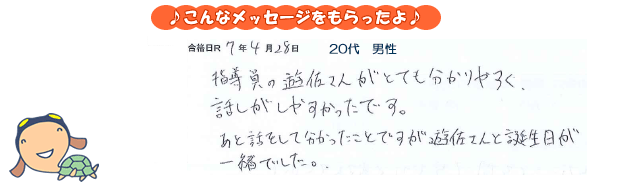 ♪こんなメッセージをもらったよ♪
合格日R 7年4月28日 20代 男性
指導員の遊佐さんがとても分かりやすく、
話しがしやすかったです。
あと話をして分かったことですが遊佐さんと誕生日が
一緒でした。